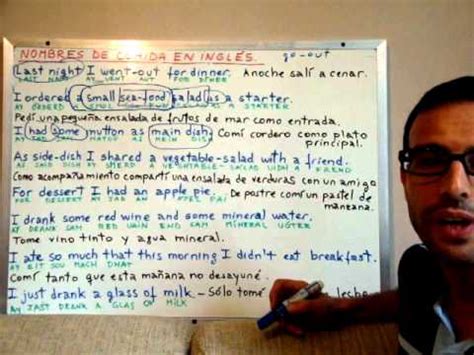 NOMBRES DE COMIDA EN INGLÉS. go-out
Last night I went-out for dinner. Anoche salí a cenar.
LAST NAIT AY UENT AUT FOR DINER
I ordered a small sea-food salad as a starter.
Pedí una pequeña ensalada de frutos de mar como entrada.
I had some mutton as main dish. Comí cordero como plato
principal.
As side-dish I shared a vegetable-salad with a friend.
Como acompañamiento compartí una ensalada de verduras con un amigo
For dessert I had an apple pie. De postre comí un pastel de
manzana.
I drank some red wine and some mineral water.
AY DRANK SAM RED UAIN END SAM MINERAL UOTER
Tome vino tinto y agua mineral.
I ate so much that this morning I didn't eat breakfast.
Comí tanto que esta mañana no desayuné.
I just drank a glass of milk – Sólo tomé leche
AY JAST DRANK A GLAS OF MILK